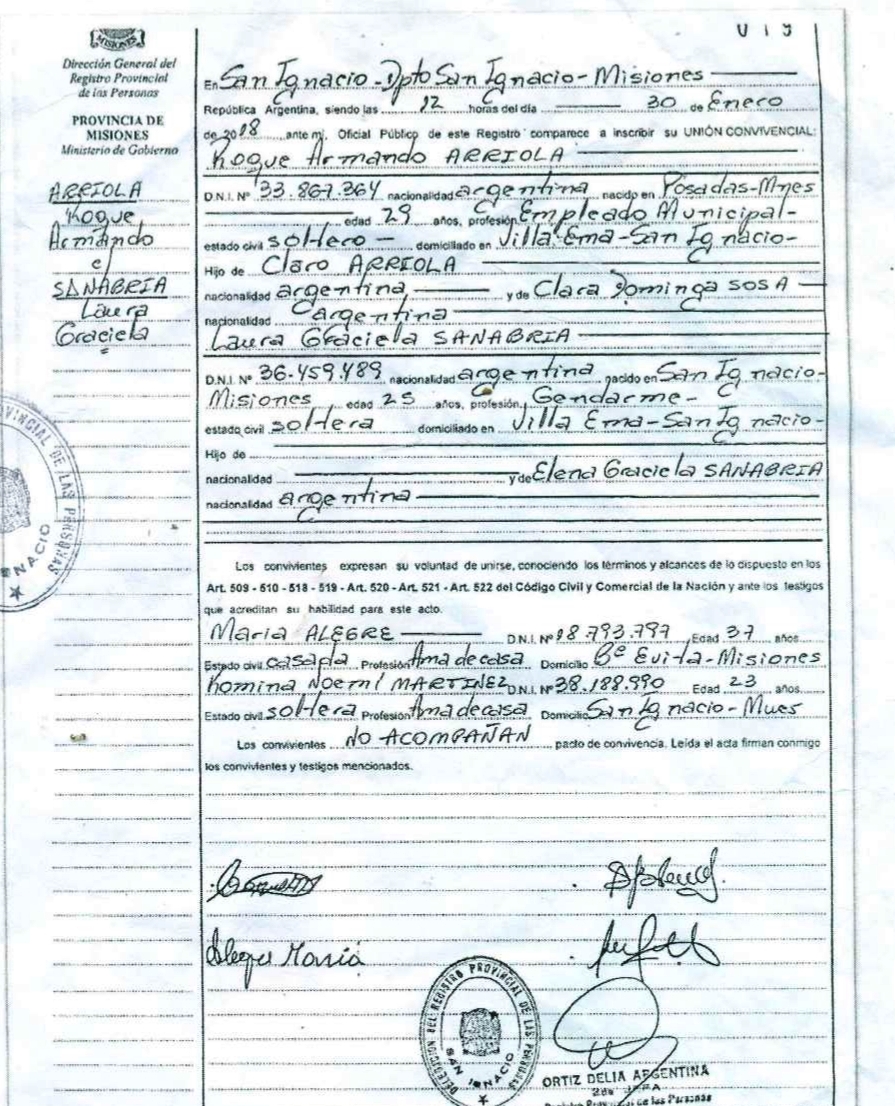 019
MISIONES
Dirección General del
Registro Provincial
de las Personas
PROVINCIA DE
MISIONES
Ministerio de Gobierno
ARRIOLA
Roque
Armando
e
SANABRIA
Laura
Graciela
En San Ignacio - Dpto San Ignacio - Misiones
República Argentina, siendo las 12 horas del día 30 de Enero
de 2018 ante mí, Oficial Público de este Registro comparece a inscribir su UNIÓN CONVIVENCIAL:
Roque Armando ARRIOLA
D.N.I. Nº 33.867.364 nacionalidad argentina nacido en Posadas-Mnes
edad 29 años, profesión Empleado Municipal-
estado civil soltero - domiciliado en Villa Ema-San Ignacio-
Hijo de Claro ARRIOLA
nacionalidad argentina y de Clara Dominga SOSA
nacionalidad argentina
Laura Graciela SANABRIA
D.N.I. Nº 36.459.489 nacionalidad argentina nacido en San Ignacio-
Misiones edad 25 años, profesión Gendarme-
estado civil soltera domiciliado en Villa Ema-San Ignacio-
Hijo de
nacionalidad y de Elena Graciela SANABRIA
nacionalidad argentina
Los convivientes expresan su voluntad de unirse, conociendo los términos y alcances de lo dispuesto en los
Art. 509 - 510 - 518 - 519 - Art. 520 - Art. 521 - Art. 522 del Código Civil y Comercial de la Nación y ante los testigos
que acreditan su habilidad para este acto.
Maria ALEGRE D.N.I. Nº 18.793.797 Edad 37 años
Estado civil casada Profesión Ama de casa Domicilio Bº Evita-Misiones
Romina Noemí MARTINEZ D.N.I. Nº 38.188.990 Edad 23 años
Estado civil soltera Profesión Ama de casa Domicilio San Ignacio - Mnes
Los convivientes NO ACOMPAÑAN pacto de convivencia. Leída el acta firman conmigo
los convivientes y testigos mencionados.
Alegre María
DELEGACION DEL REGISTRO PROVINCIAL DE LAS PERSONAS
SAN IGNACIO
ORTIZ DELIA ARGENTINA
JEFA
Registro Provincial de las Personas